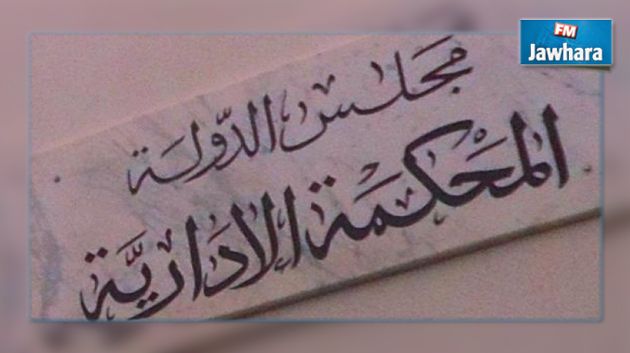 FM
Jawhara
مجلس الدّولة
المحكمة الادارية